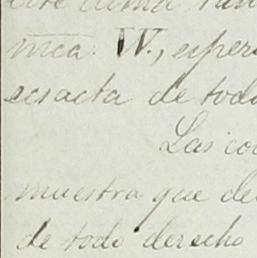 mca. W., espera
exacta de todo
Las co
muestra que de
de todo derecho